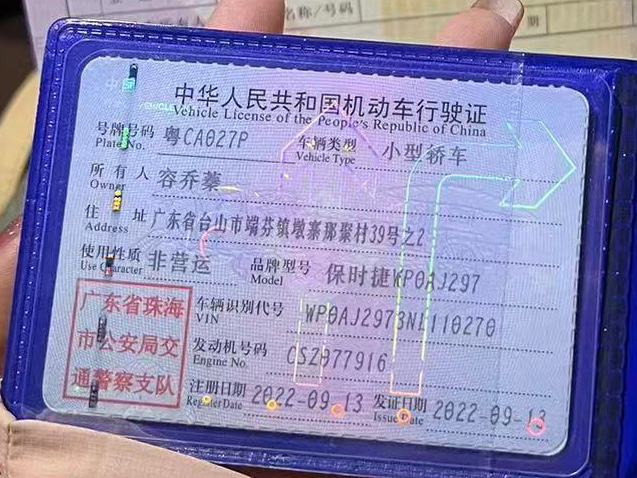 名称/号码
期
中华人民共和国机动车行驶证
Vehicle License of the People's Republic of China
号牌号码 粤CA027P 车辆类型 小型轿车
Plate No. Vehicle Type
所有人 容乔蓁
Owner
住址 广东省台山市端芬镇墩寨那聚村39号之2
Address
使用性质 非营运 品牌型号 保时捷WP0AJ297
Use Character Model
广东省珠海
市公安局交
通警察支队
车辆识别代号 WP0AJ2973N1110270
VIN
发动机号码 CSZ077916
Engine No.
注册日期 2022-09-13 发证日期 2022-09-13
Register Date Issue Date